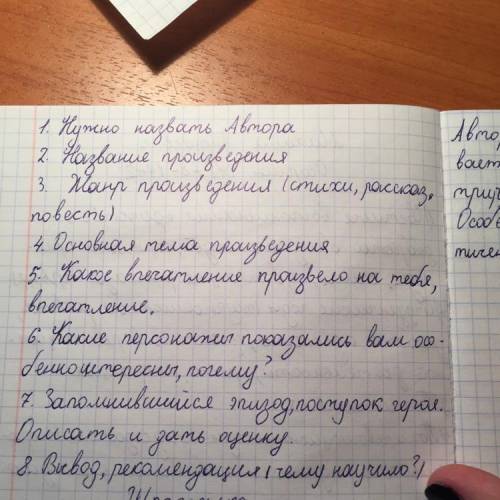 1. Нужно назвать Автора
2. Название произведения
3. Жанр произведения (стихи, рассказ,
повесть)
4. Основная тема праизведения
5. Какое впечатление произвело на тебя,
впечатление.
6. Какие персонажы показались вам осо-
бенноинтересны, почему?
7. Запомнившийся эпизод, поступок героя.
Описать и дать оценку.
8. Вывод, рекомендация (чему научило?)
Автор
вает
прич
Особе
тичес